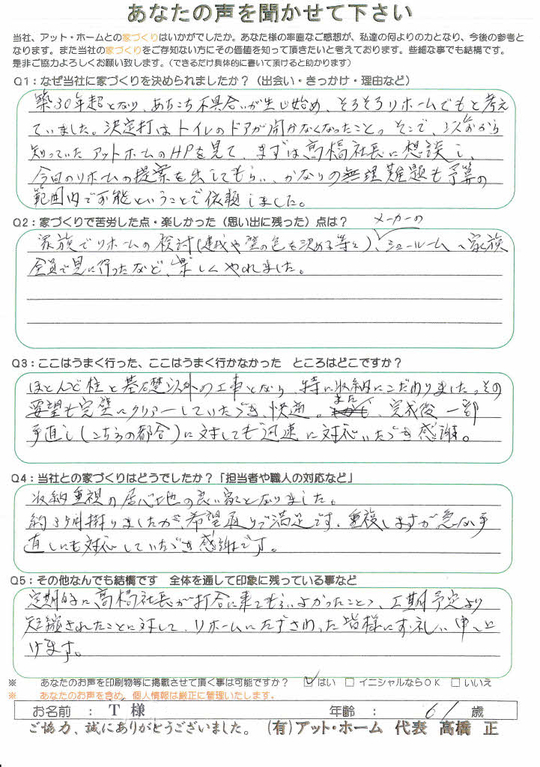 あなたの声を聞かせて下さい
当社、アット・ホームとの家づくりはいかがでしたか。あなた様の率直なご感想が、私達の何よりの力となり、今後の参考と
なります。また当社の家づくりをご存知ない方にその価値を知って頂きたいと考えております。些細な事でも結構です。
是非ご協力よろしくお願い致します。(できるだけ具体的に書いて頂けると助かります)
Q1：なぜ当社に家づくりを決められましたか？（出会い・きっかけ・理由など）
築30年超となり、あちこち不具合いが出始め、そろそろリホームでもと考え
ていました。決定打はトイレのドアが開かなくなったこと。そこで、以前から
知っていたアットホームのHPを見て、まずは高橋社長に相談し、
今回のリホームの提案を出してもらい、かなりの無理難題も予算の
範囲内で可能ということで依頼しました。
Q2：家づくりで苦労した点・楽しかった（思い出に残った）点は？
メーカーの
家族でリホームの検討(建成や壁の色を決める等と)、ショールームへ家族
全員で見に行ったなど、楽しくやれました。
Q3：ここはうまく行った、ここはうまく行かなかった　ところはどこですか？
ほとんど柱と基礎以外の工事となり、特に収納にこだわりました。その
要望も完璧にクリアーしていただき、快適。また、完成後一部
手直し(こちらの都合)に対しても迅速に対応いただき感謝。
Q4：当社との家づくりはどうでしたか？「担当者や職人の対応など」
収納重視の居心地の良い家となりました。
約3ヶ月掛りましたが、希望通りで満足です。重複しますが急な手
直しにも対応していただき感謝です。
Q5：その他なんでも結構です　全体を通して印象に残っている事など
定期的に高橋社長が打合に来てもらいよかったことと、工期予定より
短縮されたことに対して、リホームにたずさわった皆様に御礼申し上
げます。
※　あなたのお声を印刷物等に掲載させて頂く事は可能ですか？ ☑はい □イニシャルならOK □いいえ
※　あなたのお声を含め、個人情報は厳正に管理いたします。
お名前　：　T 様　年齢　：　61　歳
ご協力、誠にありがとうございました。（有）アット・ホーム　代表　高橋　正